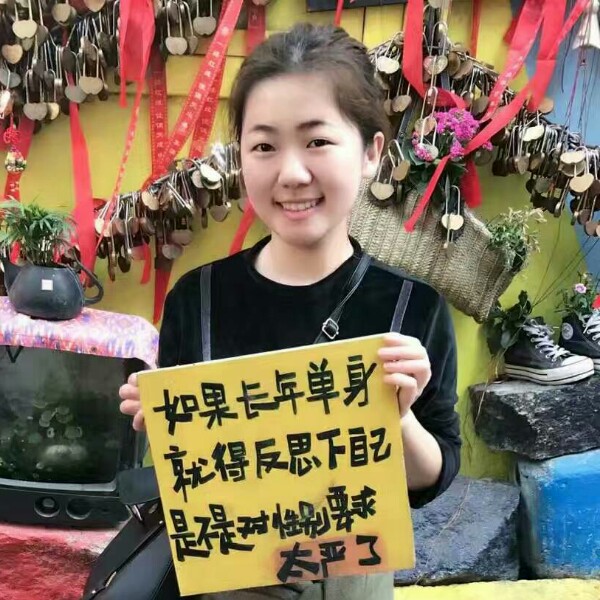 如果长年单身
就得反思下自己
是不是对性别要求
太严了